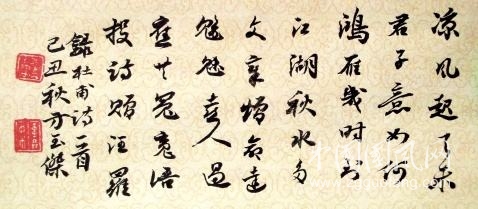 凉風起天末
君子意如何
鴻雁幾時到
江湖秋水多
文章憎命達
魑魅喜人過
應共冤魂語
投詩贈汨羅
錄杜甫詩一首
己丑秋方玉傑